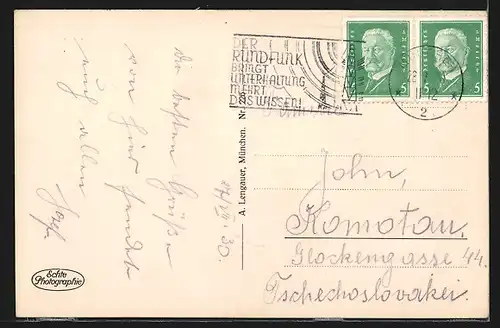 DER
RUNDFUNK
BRINGT
UNTERHALTUNG
MEHRT
DAS WISSEN!
5
5
2
Die besten Grüße
von hier sendet
euch allen
Josef
30.
A. Lengauer, München. Nr. 220
John,
Komotau.
Glockengasse 44.
Tschechoslovakei.
Echte
Photographie